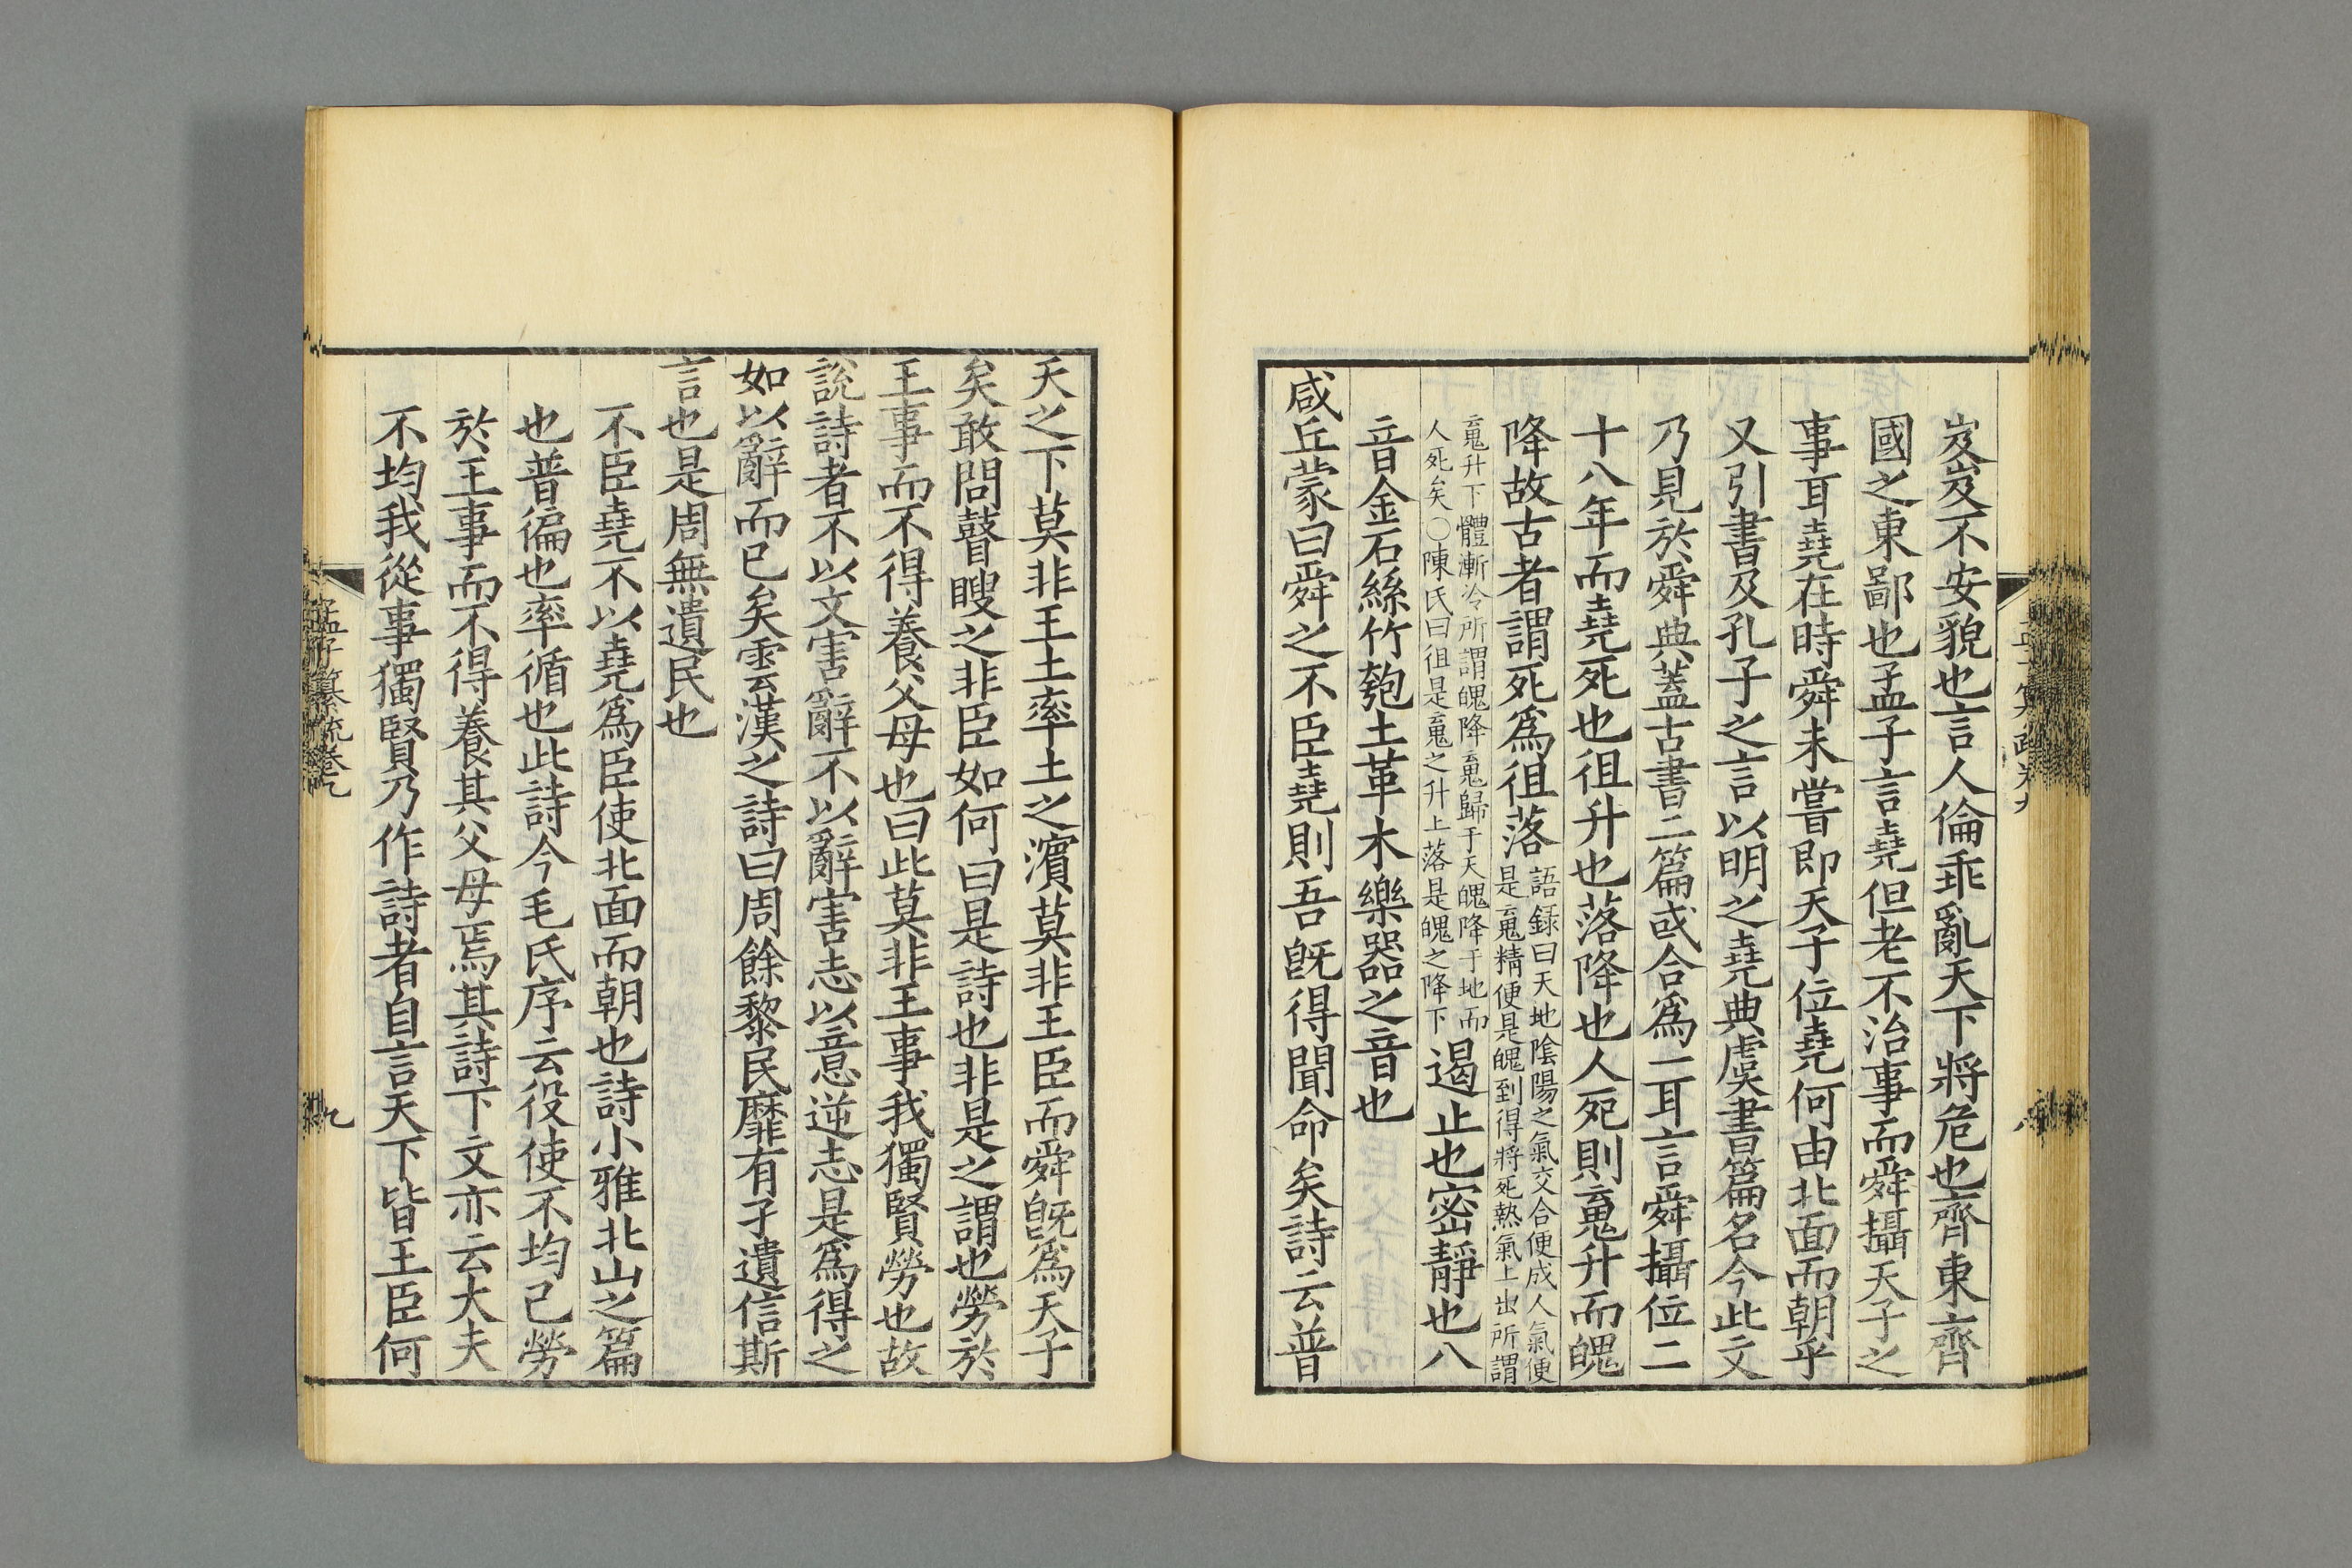 岌岌不安貌也言人倫乖亂天下將危也齊東齊
國之東鄙也孟子言堯但老不治事而舜攝天子之
事耳堯在時舜未嘗即天子位堯何由北面而朝乎
又引書及孔子之言以明之堯典虞書篇名今此文
乃見於舜典蓋古書二篇或合爲一耳言舜攝位二
十八年而堯死也徂升也落降也人死則䰟升而魄
降故古者謂死爲徂落
語録曰天地隂陽之氣交合便成人氣便
是䰟精便是魄到得將死熱氣上出所謂
䰟升下體漸冷所謂魄降䰟歸于天魄降于地而
人死矣○陳氏曰徂是䰟之升上落是魄之降下
遏止也密靜也八
音金石絲竹匏土革木樂器之音也
咸丘蒙曰舜之不臣堯則吾旣得聞命矣詩云普
天之下莫非王土率土之濱莫非王臣而舜旣爲天子
矣敢問瞽瞍之非臣如何曰是詩也非是之謂也勞於
王事而不得養父母也曰此莫非王事我獨賢勞也故
說詩者不以文害辭不以辭害志以意逆志是爲得之
如以辭而已矣雲漢之詩曰周餘黎民靡有孑遺信斯
言也是周無遺民也
不臣堯不以堯爲臣使北面而朝也詩小雅北山之篇
也普徧也率循也此詩今毛氏序云役使不均己勞
於王事而不得養其父母焉其詩下文亦云大夫
不均我從事獨賢乃作詩者自言天下皆王臣何
孟子纂疏卷九
九